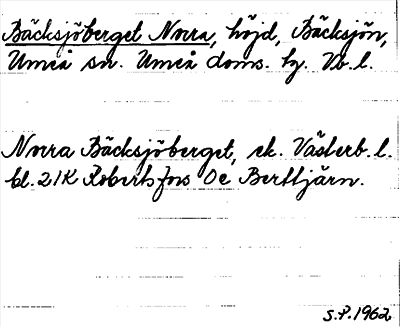 Bäcksjöberget Norra, höjd, Bäcksjön,
Umeå sn. Umeå doms. hg. Vb. l.
Norra Bäcksjöberget, ek. Västerb. l.
bl. 21K Robertsfors 0c Berttjärn.
S.P. 1962